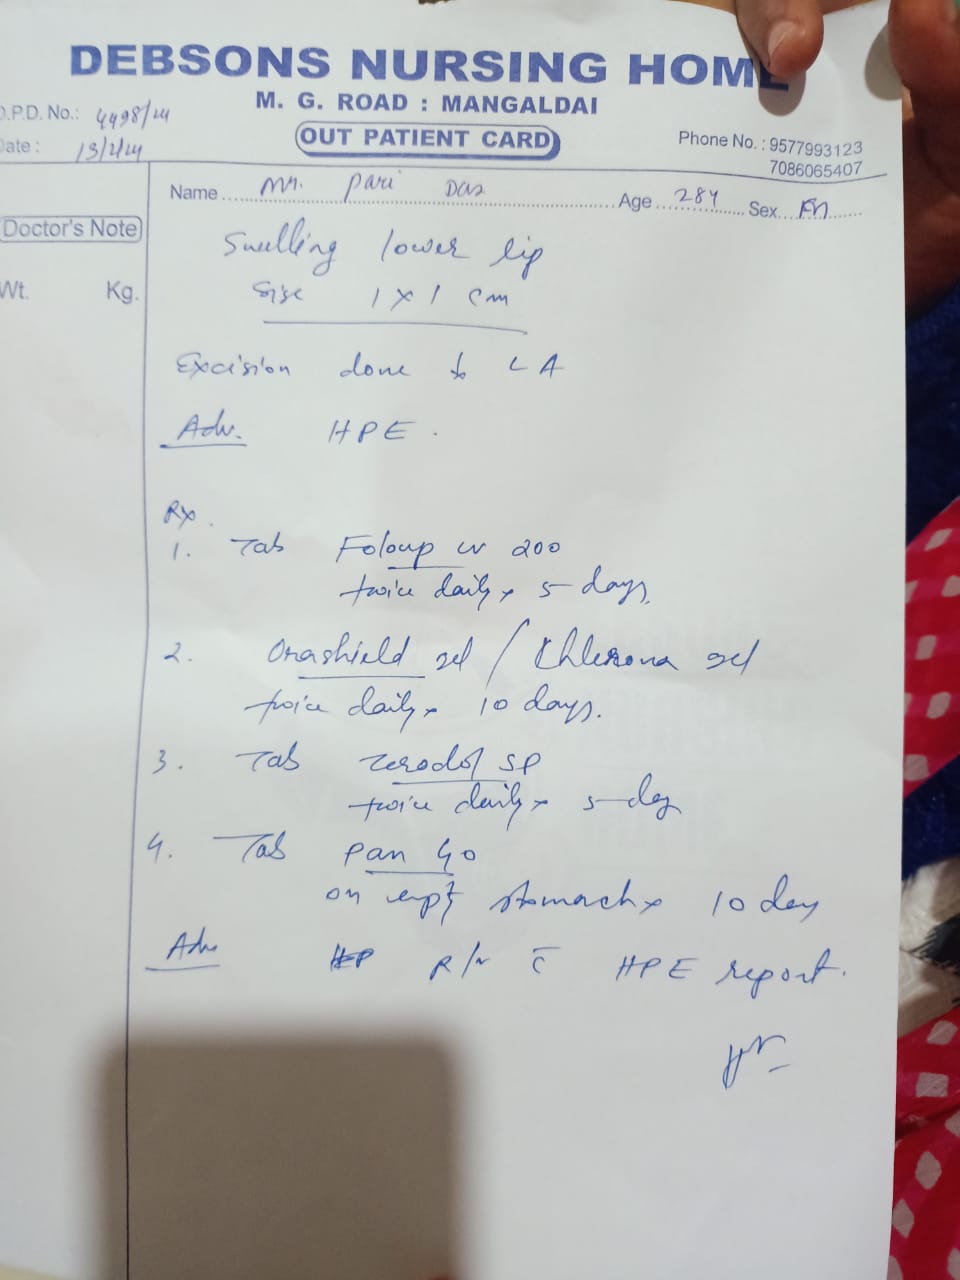 DEBSONS NURSING HOME
M. G. ROAD : MANGALDAI
O.P.D. No.: 4498/24
OUT PATIENT CARD
Phone No. : 9577993123
7086065407
Date : 13/2/24
Name Mr. Pari Das Age 28Y Sex
Doctor's Note
Wt. Kg.
Swelling lower lip
Size 1 x 1 cm
Excision done LA
Adv. HPE.
Rx.
1. Tab cv 200
twice daily x 5 days.
2. Orashield gel / gel
twice daily x 10 days.
3. Tab Zerodol SP
twice daily x 5 day
4. Tab Pan 40
on empty stomach x 10 day
Adv R/v c̄ HPE report.